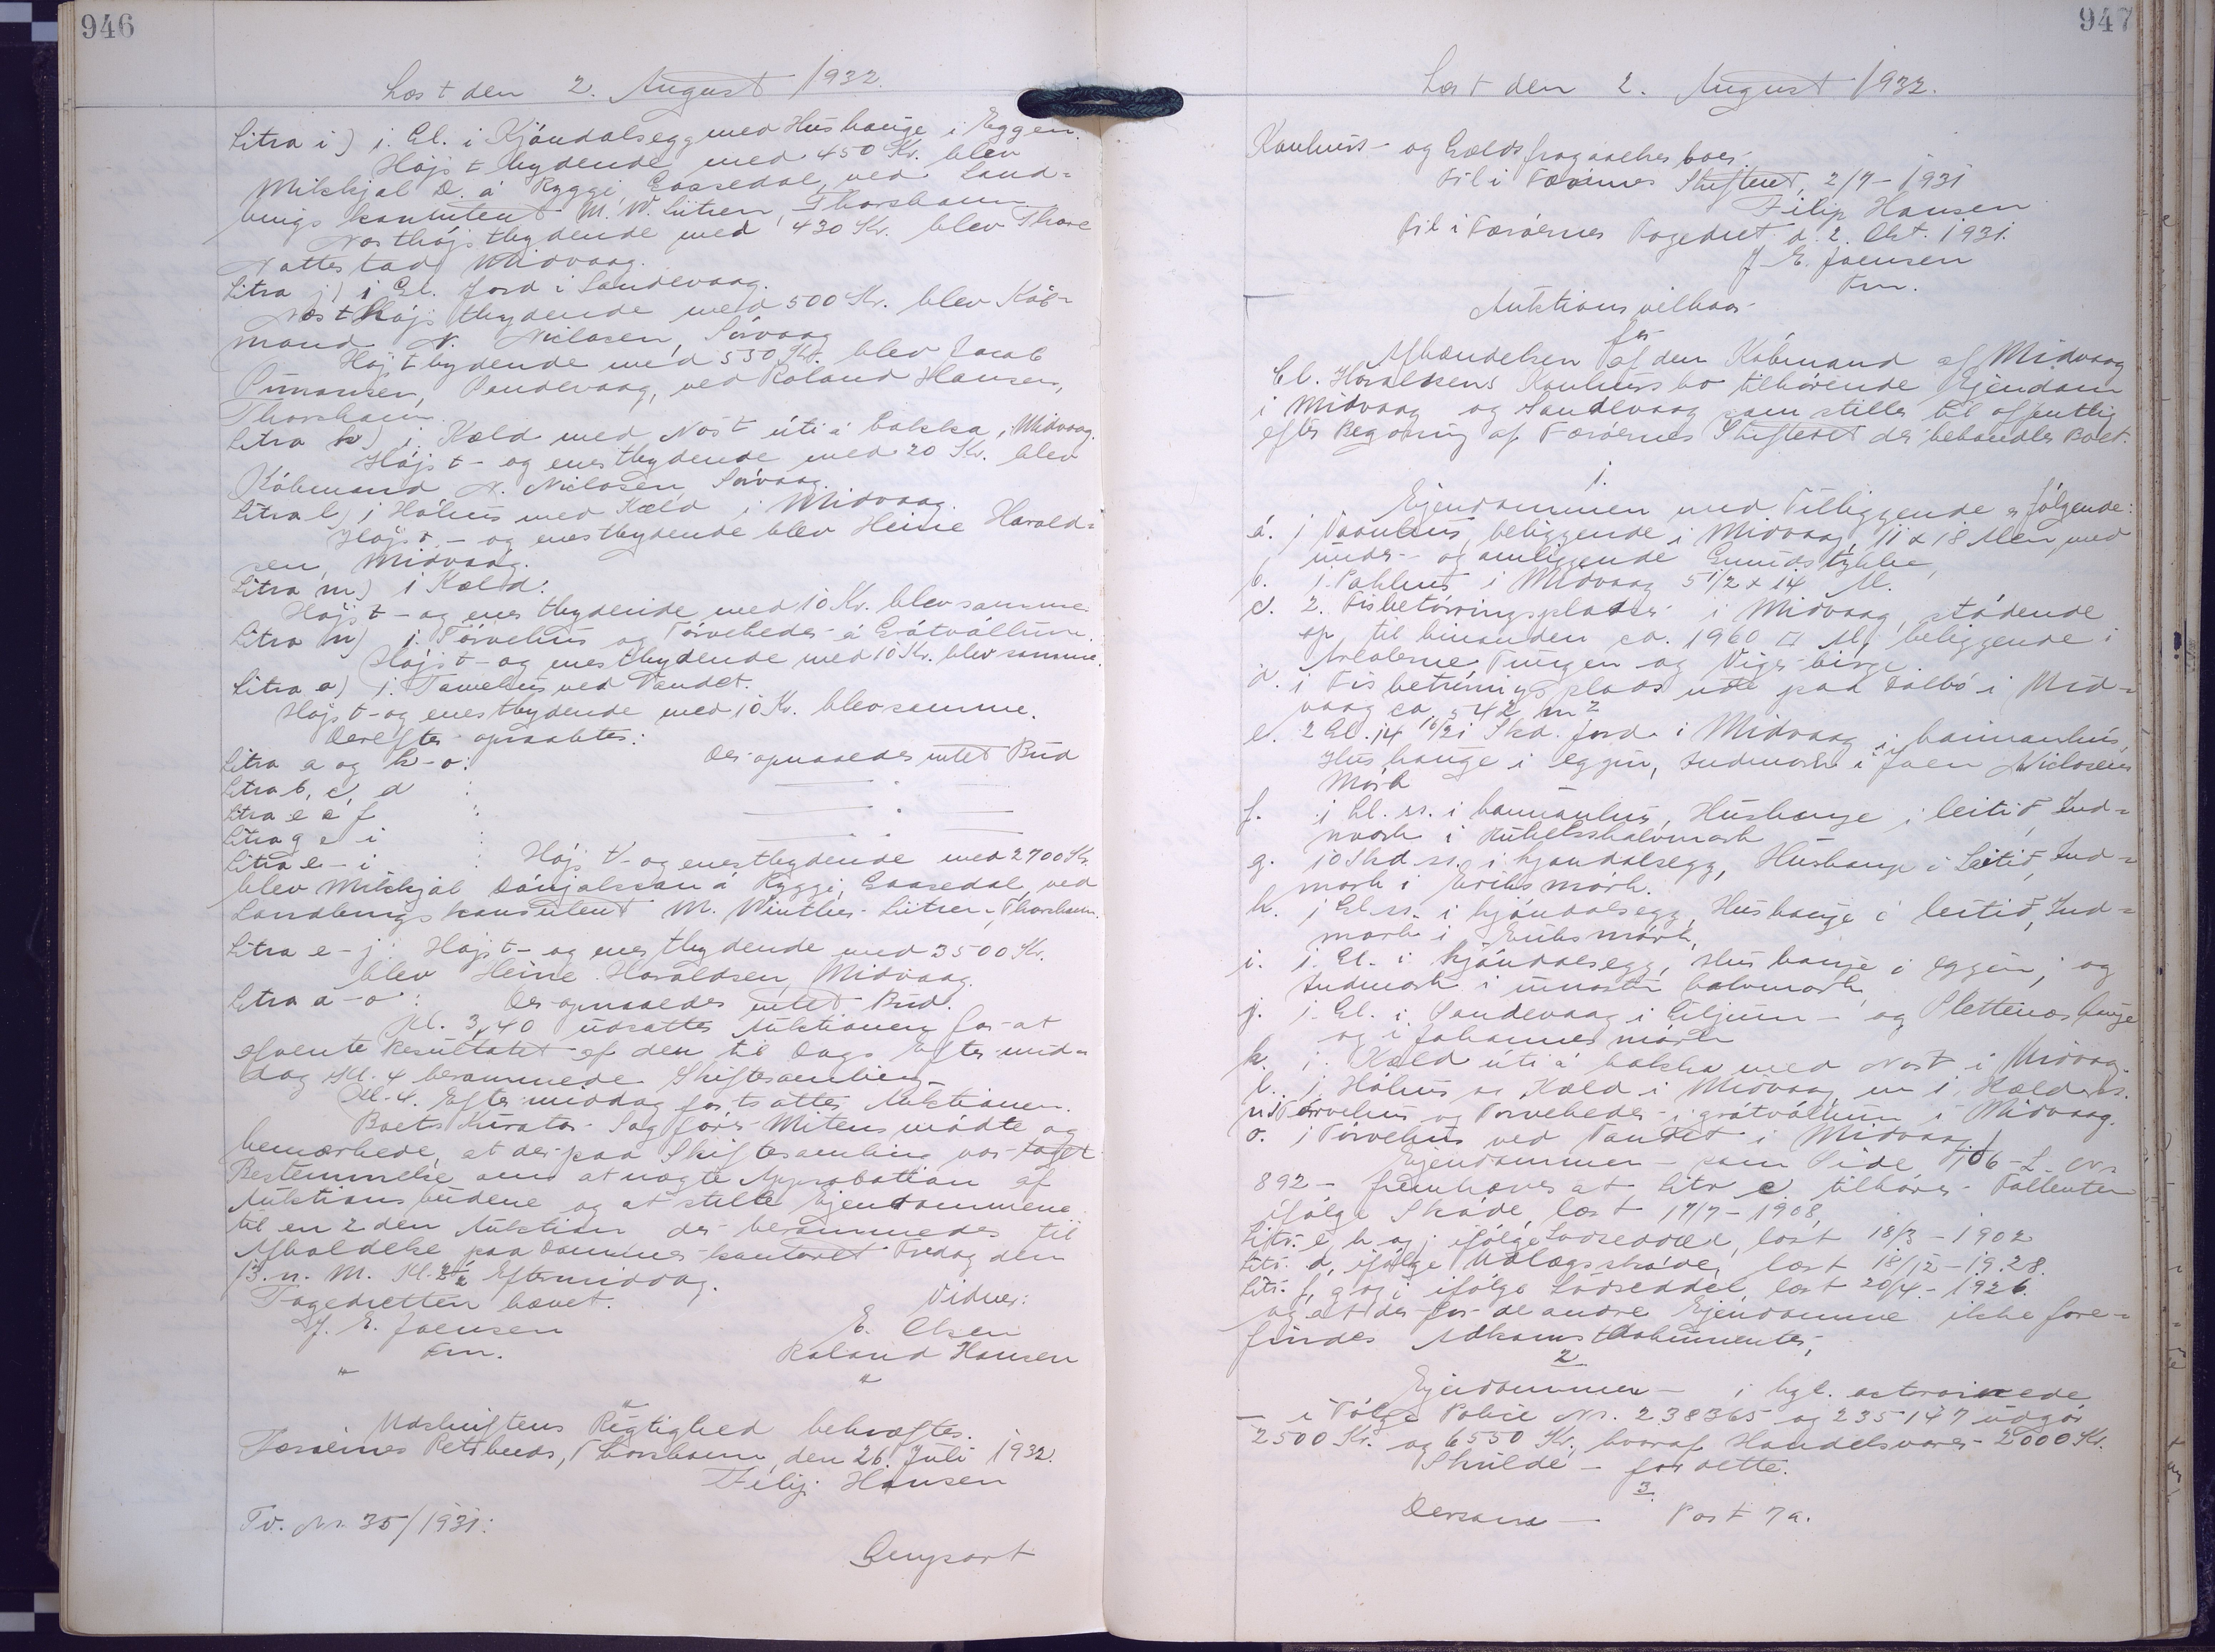 946
Læst den 2. August 1932.
Litra i) 1 Gl. i Kjóndalsegg med Hushauge i Eggen.
Højstbydende med 450 Kr. blev
Mikkjal D. á Ryggi, Gaasedal, ved Land-
brugskonsulent M. W. Lützen, Thorshavn
Næsthøjstbydende med 430 Kr. blev Thore
Nattestad Midvaag.
Litra j) 1 Gl. Jord i Sandevaag.
Næsthøjstbydende med 500 Kr. blev Køb-
mand N. Niclasen, Sørvaag
Højstbydende med 550 Kr. blev Jacob
Simonsen, Sandevaag, ved Roland Hansen,
Thorshavn
Litra k) 1 Kæld med Nøst úti á bakka, Midvaag.
Højst- og enestbydende med 20 Kr. blev
Købmand N. Niclasen Sørvaag.
Litra l) 1 Hóhus med Kæld i Midvaag.
Højst- og enestbydende blev Heine Harald-
sen, Midvaag.
Litra m) 1 Kæld:
Højst- og enestbydende med 10 Kr. blev samme
Litra n) 1 Tørvehus og Tørveheder á Grátvøllum.
Højst- og enestbydende med 10 Kr. blev samme.
Litra o) 1 Tørvehus ved Vandet.
Højst- og enestbydende med 10 Kr. blev samme.
Derefter opraabtes:
Litra a og k-o: Der opnaaedes intet Bud
Litra b, c, d : — " —
Litra e á f : — " —
Litra g á i : — " —
Litra e-i : Højst- og enestbydende med 2700 Kr.
blev Mikkjal Dánjalsson á Ryggi, Gaasedal, ved
Landbrugskonsulent M. Winther-Lützen, Thorshavn.
Litra e-j: Højst- og enestbydende med 3500 Kr.
blev Heine Haraldsen, Midvaag.
Litra a-o : Der opnaaedes intet Bud.
Kl. 3,40 udsattes Auktionen for at
afvente Resultatet af den til Dags Eftermid-
dag Kl. 4 berammede Skiftesamling.
Kl. 4 Eftermiddag fortsattes Auktionen.
Boets Kurator Sagfører Mitens mødte og
bemærkede, at der paa Skiftesamling var taget
Bestemmelse om at nægte Approbation af
Auktionsbudene og at stille Ejendommene
til en 2den Auktion der berammedes til
Afholdelse paa Dommerkontoret Fredag den
13. n. M. Kl. 2½ Eftermiddag.
Fogedretten hævet.
Vidner:
J. E. Joensen E. Olsen
Fm. Roland Hansen
" "
"
Udskriftens Rigtighed bekræftes.
Færøernes Retskreds, Thorshavn, den 26. Juli 1932.
Filip Hansen
Tv. Nr. 35/1931:
Genpart
947
Læst den 2. August 1932.
Konkurs- og Gældsfragaaelses boer.
Til i Færøernes Skifteret, 2/9-1931
Filip Hansen
Til i Færøernes Fogedret d. 2. Okt. 1931.
J. E. Joensen
Fm.
Auktionsvilkaar
for
Afhændelsen af den Købmand af Midvaag
Cl. Haraldsens Konkursbo tilhørende Ejendom
i Midvaag og Sandevaag som stilles til offentlig
efter Begæring af Færøernes Skifteret der behandler Boet.
1.
Ejendommen med Tilliggende er følgende:
a. 1 Vaanhus beliggende i Midvaag, 11 x 18 Alen, med
under- og omliggende Grundstykke,
b. 1 Pakhus i Midvaag 5 1/2 x 14 Al.
c. 2 Fisketørringspladser i Midvaag, stødende
op til hinanden ca. 1960 □ Al, beliggende i
Arealerne Tungen og Viger-birge.
d. 1 Fisketørringsplads ude paa Falbø i Mid-
vaag ca. 542 m²
e. 2 Gl. 14 16/21 Skd. Jord i Midvaag i hannanhús,
Hushauge i eggin, Indmark i Joen Niclasens
Mørk
f. 1 Gl. ss. i hannanhus, Hushauge i leitið, Ind-
mark i Kuhelshalvmark
g. 10 Skd ss. i kjøndalsegg, Hushauge i Leitið, Ind-
mark i Eriks mørk.
h. 1 Gl. ss. i kjóndalsegg, Hushauge i leitið, Ind-
mark i Eriks mørk,
i. 1 Gl. i kjóndalsegg, Hushauge i eggin, og
Indmark i innasta halvmark,
j. 1 Gl. i Sandevaag i Giljum- og Slettenæs hauge
og i Johannes mørk
k. 1 Kæld úti á bakka med Nøst i Midvaag.
l. 1 Hóhus og Kæld i Midvaag m 1 Kæld ss.
n 1 Tørvehus og Tørveheder i grátvøllum i Midvaag.
o. 1 Tørvehus ved Vandet i Midvaag.
Ejendommen — som Side 706 L. Nr.
892 — fremhæves at Litr c tilhører Fallenten
ifølge Skøde, læst 17/7-1908,
Litr. e, h og j ifølge Lodseddel, læst 18/3-1902
Litr. d, ifølge Udlægsskøde, læst 18/12-1928.
Litr. f, g og i ifølge Lodseddel, læst 20/4-1926.
og at der for de andre Ejendomme ikke fore-
findes Adkomstdokumenter,
2
Ejendommen — i hgl.
— i Følge Police Nr. 238365 og 235147 udgør
2500 Kr. og 6550 Kr. hvoraf Handelsvarer 2000 Kr.
Skulde — for dette.
3.
Dersom — Post 7a.